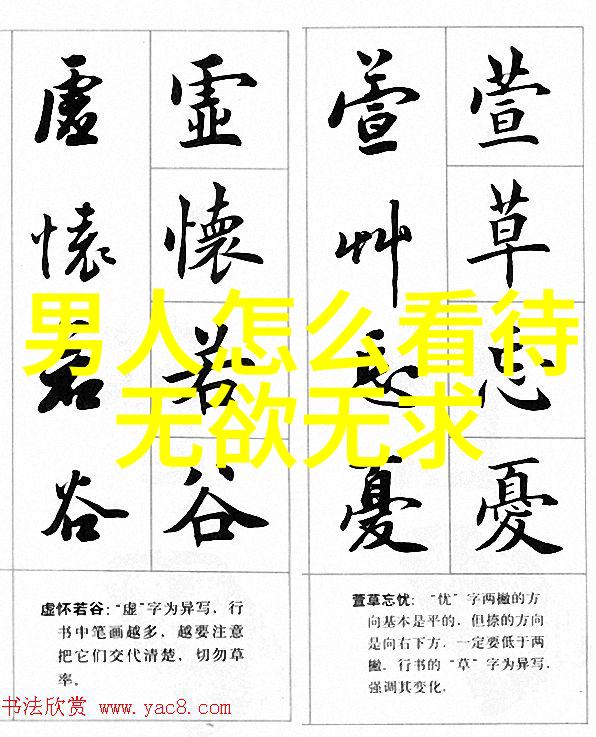 虛懷若谷
虛懷若谷
萱艸忘憂
萱草忘憂
男人怎么看待
无欲无求
虚怀若谷：“虚”字为异写，行
书中笔画越多，越要注意
把它们交代清楚，切勿草
率。
萱草忘忧：“忧”字两撇的方
向基本是平的，但捺的方向
是向右下方，一定要低于两
撇。行书的“草”字为异写，
强调其变化。
书法欣赏 www.yac8.com